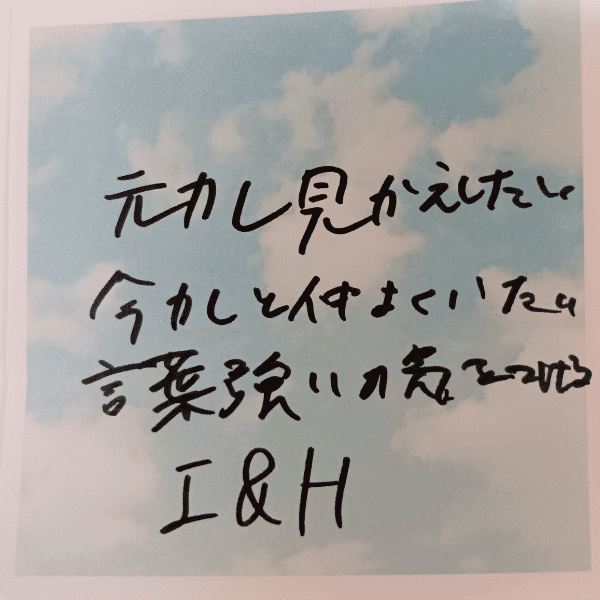 元カレ見かえしたい
今カレと仲よくいたい
言葉強いの気をつける
I&H